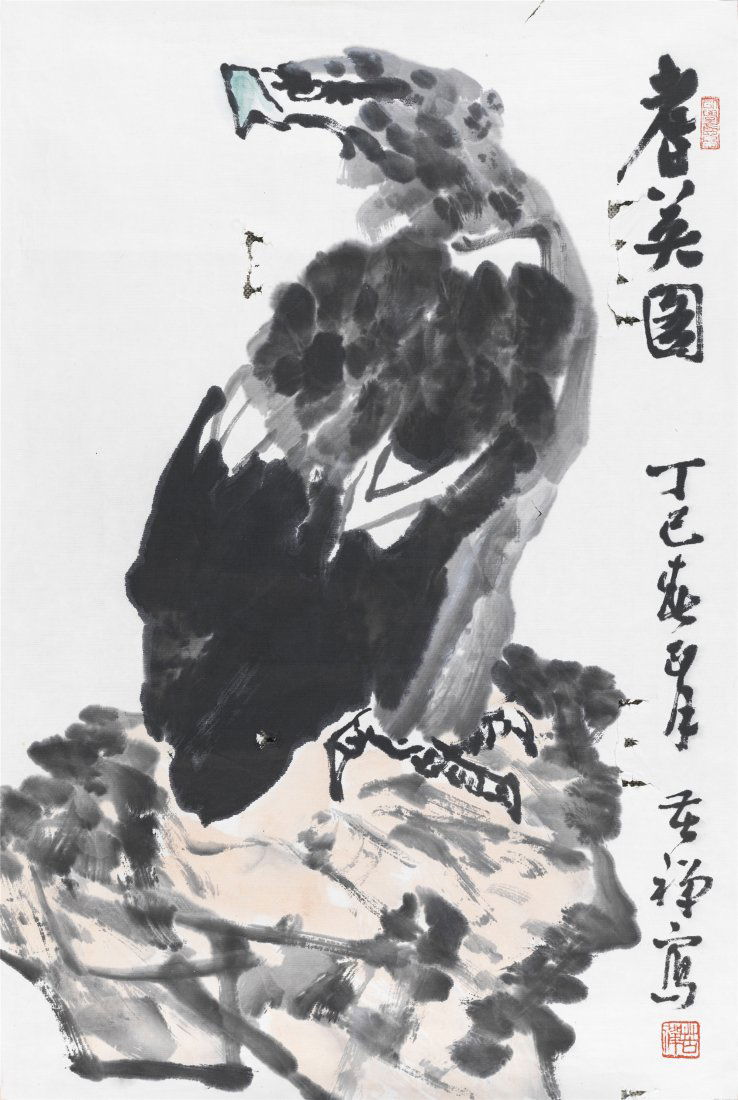 耆英圖 丁巳春正月 苦禅寫